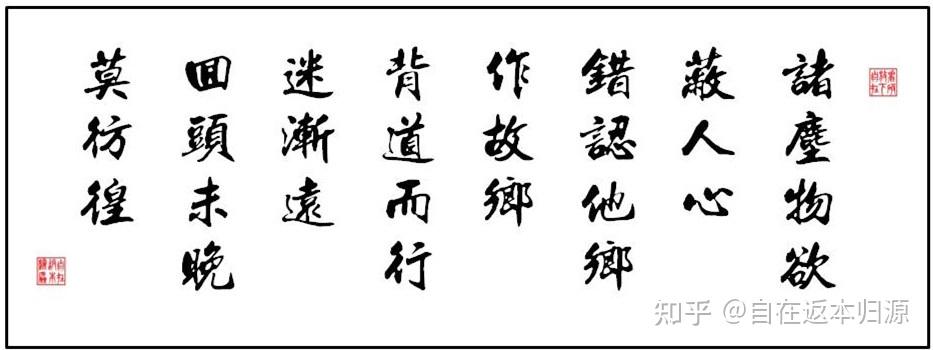 諸塵物欲
蔽人心
錯認他鄉
作故鄉
背道而行
迷漸遠
回頭未晚
莫彷徨
知乎 @自在返本归源